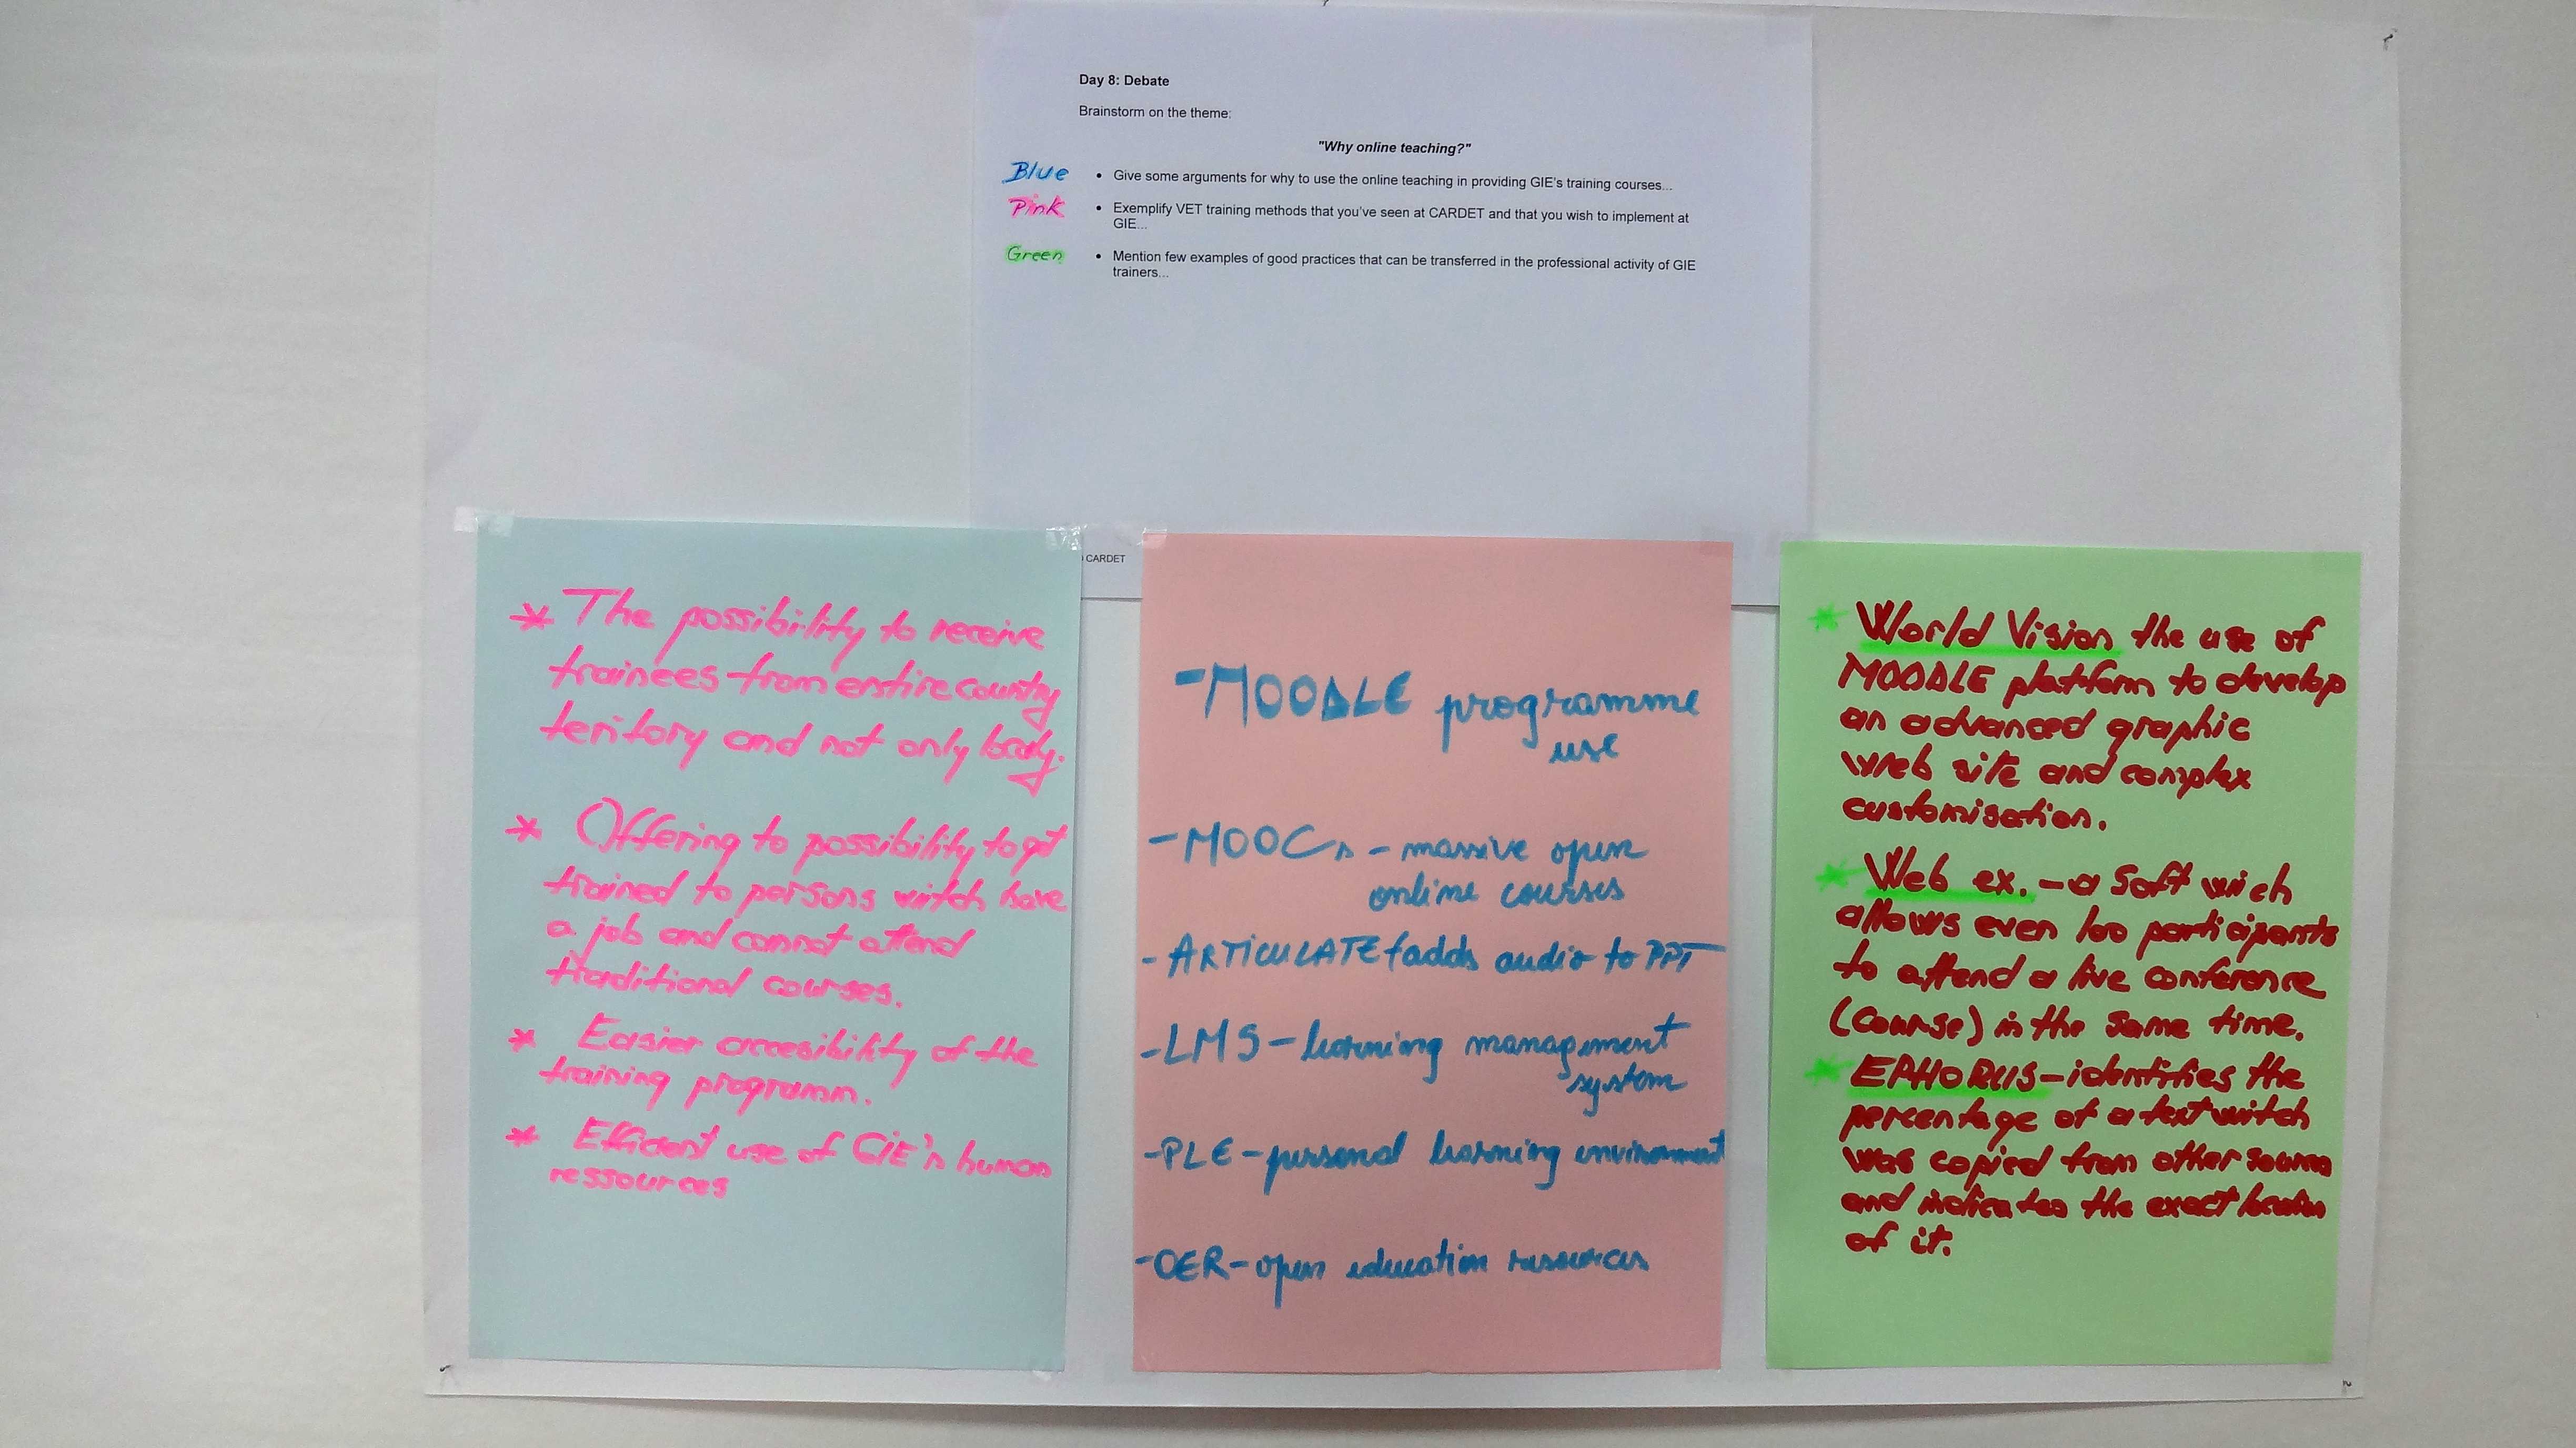 Day 8: Debate
Brainstorm on the theme:
"Why online teaching?"
Blue
• Give some arguments for why to use the online teaching in providing GIE's training courses...
Pink
• Exemplify VET training methods that you've seen at CARDET and that you wish to implement at
GIE...
Green
• Mention few examples of good practices that can be transferred in the professional activity of GIE
trainers...
CARDET
* The possibility to receive
trainees from entire country
teritory and not only localy.
* Offering to possibility to get
trained to persons witch have
a job and cannot attend
traditional courses.
* Easier accesibility of the
training programm.
* Efficient use of GIE's human
ressources
- MOODLE programme
use
- MOOCs - massive open
online courses
- ARTICULATE adds audio to PPT
- LMS - learning management
system
- PLE - personal learning environment
- OER - open education resources
* World Vision the use of
MOODLE platform to develop
an advanced graphic
web site and complex
customisation.
* Web ex. - a soft wich
allows even 100 participants
to attend a live conference
(course) in the same time.
* EPHORUS - identifies the
percentage of a text witch
was copied from other
and indicates the exact location
of it.